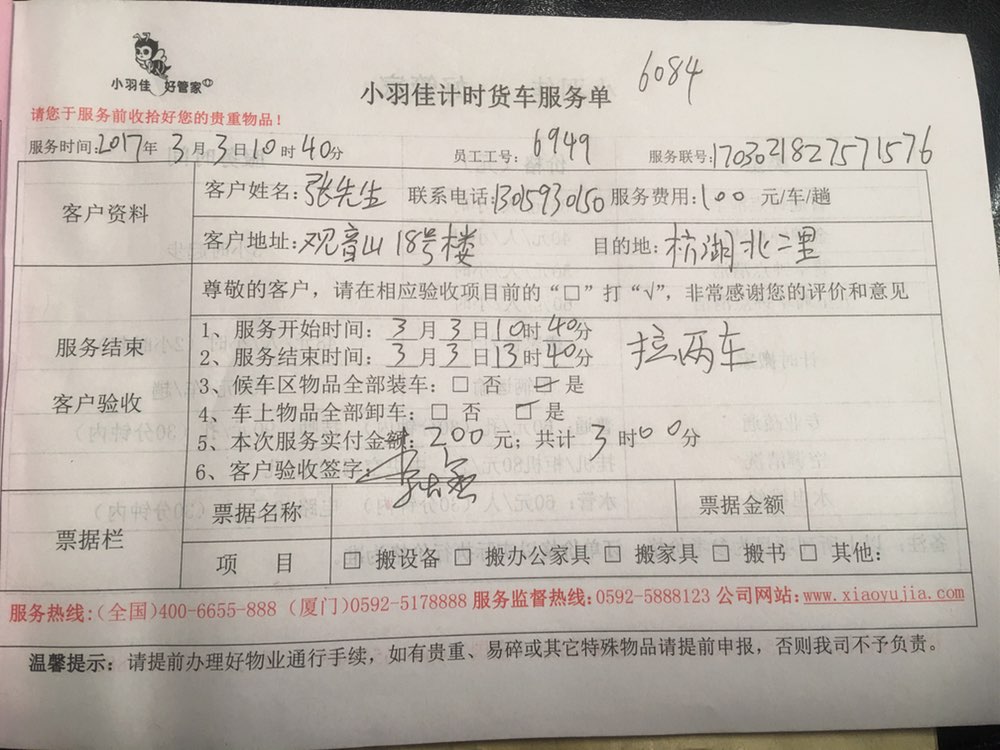 小羽佳 好管家
小羽佳计时货车服务单
6084
请您于服务前收拾好您的贵重物品！
服务时间:2017年 3 月 3 日10 时 40分 员工工号: 6949 服务联号:170302182757 1576
客户资料
客户姓名:张先生 联系电话:13015930150 服务费用:100 元/车/趟
客户地址:观音山 18号楼 目的地: 杭湖北二里
尊敬的客户，请在相应验收项目前的“□”打“√”，非常感谢您的评价和意见
服务结束
客户验收
1、服务开始时间: 3 月 3 日10时40分
2、服务结束时间: 3 月 3 日13时40分
拉两车
3、候车区物品全部装车: □ 否 ☑ 是
4、车上物品全部卸车: □ 否 ☑ 是
5、本次服务实付金额: 200 元; 共计 3 时00分
6、客户验收签字:
票据栏
票据名称 票据金额
项 目 □ 搬设备 □ 搬办公家具 □ 搬家具 □ 搬书 □ 其他:
服务热线:(全国)400-6655-888 (厦门)0592-5178888 服务监督热线:0592-5888123 公司网站:www.xiaoyujia.com
温馨提示: 请提前办理好物业通行手续，如有贵重、易碎或其它特殊物品请提前申报，否则我司不予负责。